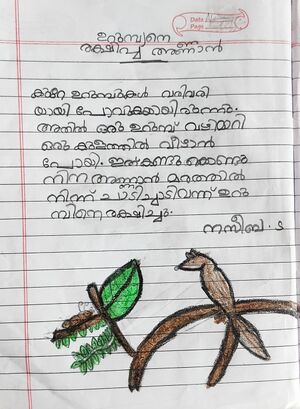 Date
Page
ഉറുമ്പിനെ
രക്ഷിച്ച അണ്ണാൻ
കുറേ ഉറുമ്പുകൾ വരിവരി
യായി പോവുകയായിരുന്നു.
അതിൽ ഒരു ഉറുമ്പ് വഴിമാറി
ഒരു കുളത്തിൽ വീഴാൻ
പോയി. ഇത് കണ്ടുകൊണ്ടു
നിന്ന അണ്ണാൻ മരത്തിൽ
നിന്ന് ചാടിച്ചാടിവന്ന് ഉറു
മ്പിനെ രക്ഷിച്ചു.
നസീബ. S